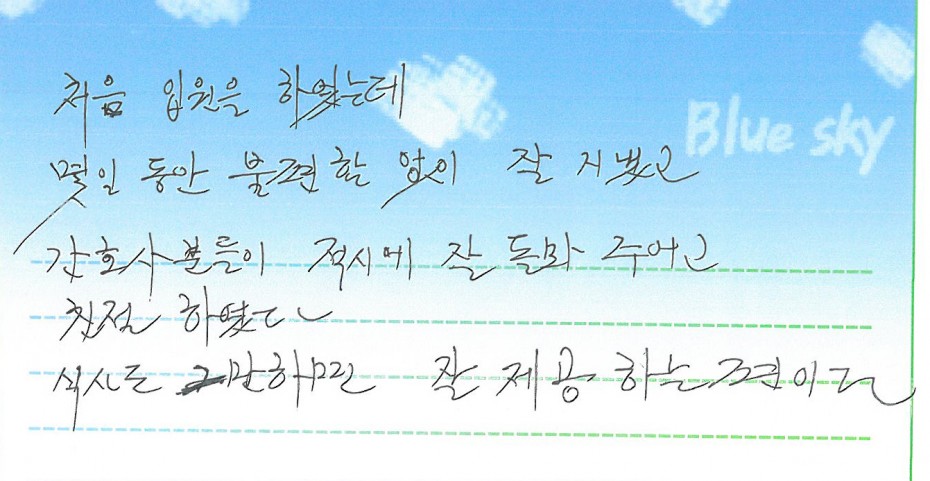 Blue sky
처음 입원을 하였는데
몇일 동안 불편함 없이 잘 지냈고
간호사분들이 적시에 잘 돌봐 주었고
친절 하였다
식사도 그만하면 잘 제공 하는 편이다